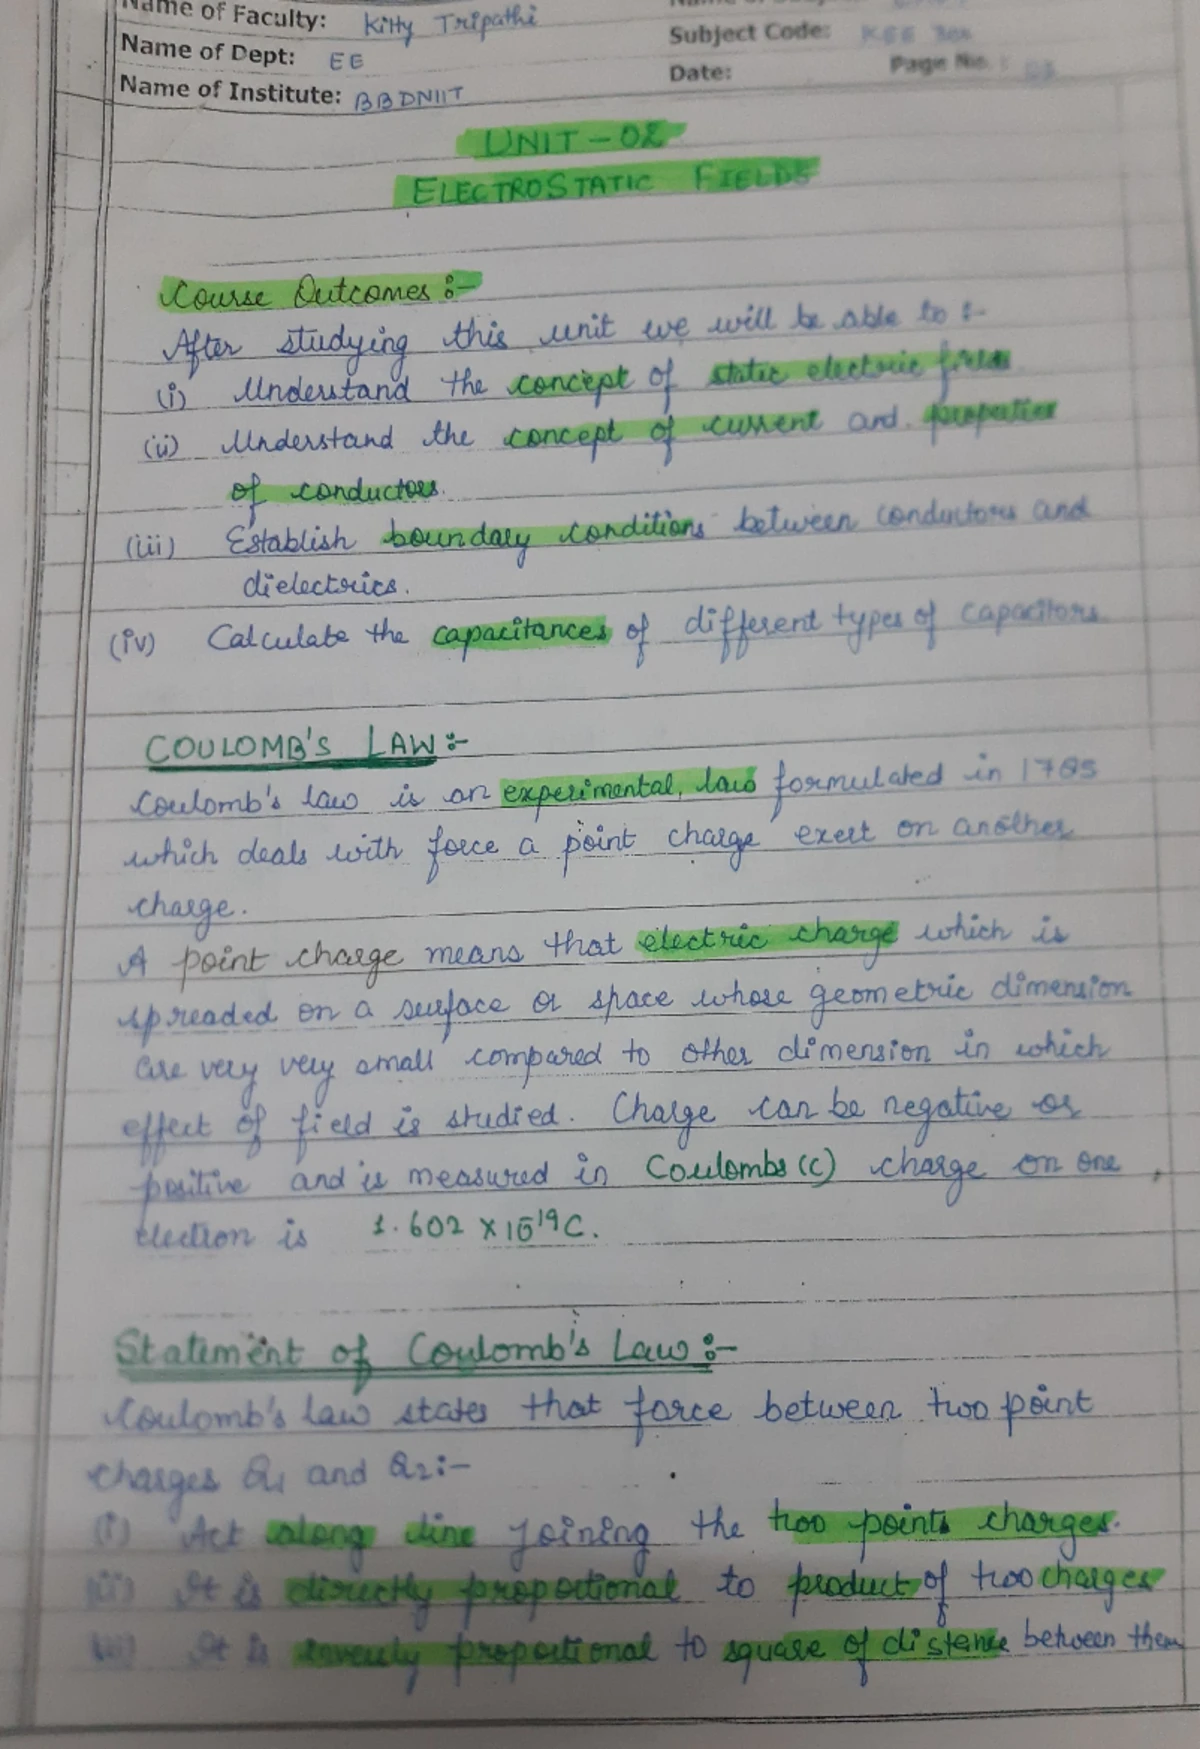 Name of Faculty: Kitty Tripathi
Subject Code: KEE
Name of Dept: EE
Date: Page No.: 03
Name of Institute: BBDNIIT
UNIT - 02
ELECTROSTATIC FIELDS
Course Outcomes :-
After studying this unit we will be able to :-
(i) Understand the concept of static electric fields
(ii) Understand the concept of current and properties
of conductors.
(iii) Establish boundary conditions between conductors and
dielectrics.
(iv) Calculate the capacitances of different types of capacitors
COULOMB'S LAW :-
Coulomb's law is an experimental law formulated in 1785
which deals with force a point charge exert on another
charge.
A point charge means that electric charge which is
spreaded on a surface or space whose geometric dimension
are very very small compared to other dimension in which
effect of field is studied. Charge can be negative or
positive and is measured in Coulombs (C) charge on one
electron is 1.602 × 10⁻¹⁹C.
Statement of Coulomb's Law :-
Coulomb's law states that force between two point
charges Q1 and Q2 :-
(i) Act along line joining the two points charges.
(ii) It is directly proportional to product of two charges
(iii) It is inversly proportional to square of distance between them